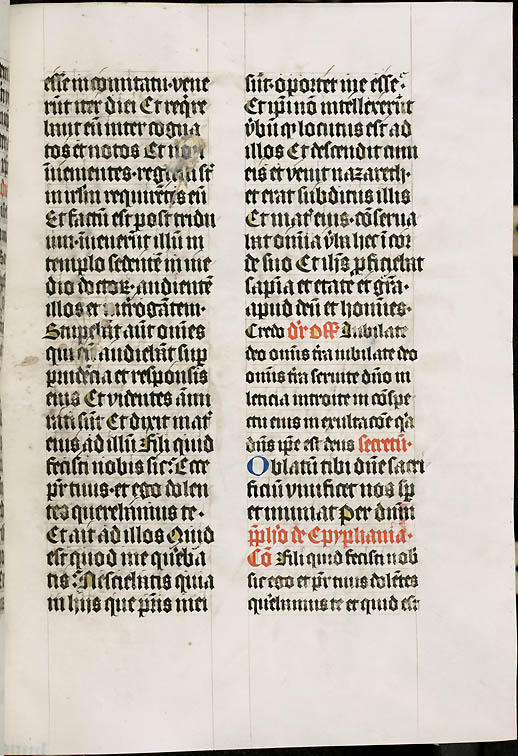 esse in comitatu. vene
rūt iter diei Et reqͥre
bant eū inter cogna
tos et notos Et non
īuenientes. regressi st̄
in irlm̄ requirētes eū
Et factū est post tridu
um. īuenerūt illum in
templo sedentē in me
dio doctoꝝ. audientē
illos et īterrogātem.
Stupebāt aūt omīes
qui eū audiebāt sup
prudēcia et responsis
eius Et videntes am̄i
rati sūt Et dixit mat̄
eius ad illū Fili quid
fecisti nobis sic: Ecce
pr̄ tuus. et ego dolen
tes querebamus te.
Et ait ad illos Quid
est quod me quēba
tis: Nesciebatis quia
in hijs que pr̄is mei
sūt. oportet me esse:
Et ipī nō intellexerūt
v̄bū qͦ locutus est ad
illos Et descendit cum
eis et venit nazareth.
et erat subditus illis
Et mat̄ eius cōserua
bat omīa v̄ba hec ī cor
de suo Et ihs̄ ꝓficiebat
sapīa et etate et grā.
apud deū et homīes.
Credo Offr̄ Iubilate
deo omīs t̄ra iubilate deo
omīs t̄ra seruite dn̄o in
leticia introite in cōspe
ctu eius in exultacōe qͣ
dn̄s ip̄e est deus secretū.
Oblatū tibi dn̄e sacri
ficiū viuificet nos sp̄
et muniat Per dn̄m
de Epyphania.
Cō Fili quid fecisti nob
sic ego et pr̄ tuus dolētes
quēbamus te et quid est